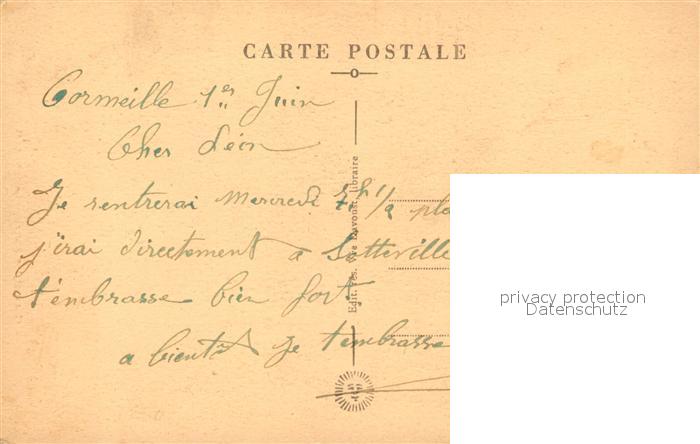 CARTE POSTALE
Cormeille 1er Juin
Cher Léon
Je rentrerai Mercredi 7h 1/2
j'irai directement a Sotteville
t'embrasse bien fort
a bientôt je t'embrasse
Edit. Vve Davoust, libraire
privacy protection
Datenschutz